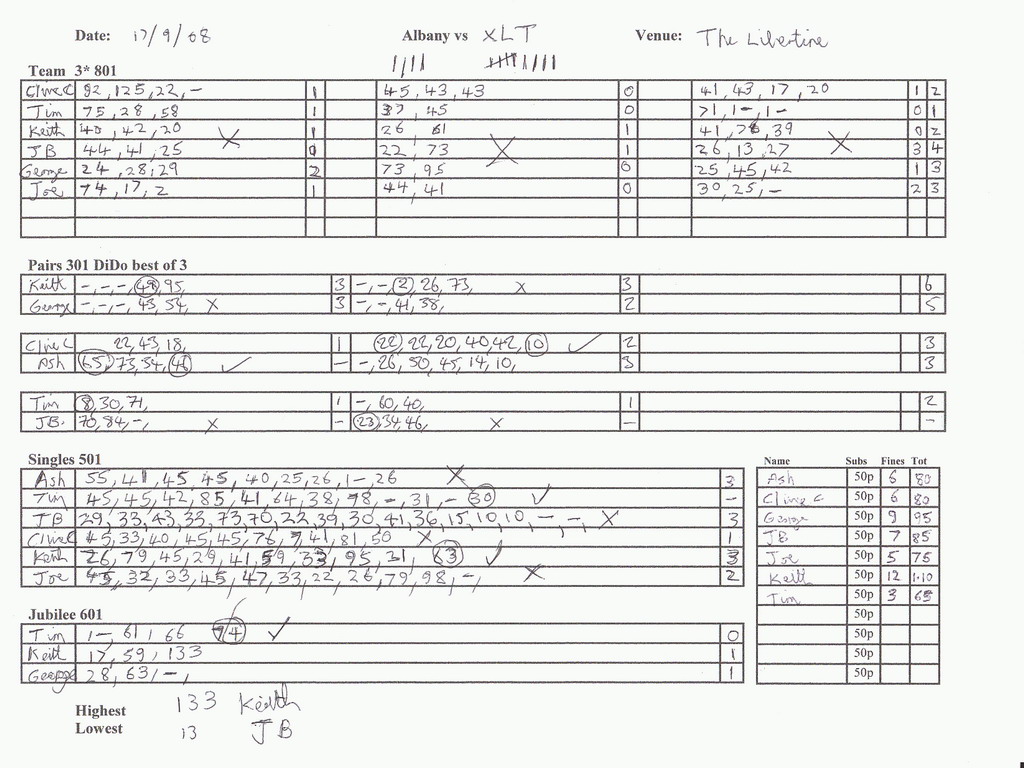 Date: 17/9/08 Albany vs XLT Venue: The Libertine
Team 3* 801
Clive C 82, 125, 22, – 1 45, 43, 43 0 41, 43, 17, 20 1 2
Tim 75, 28, 58 1 37, 45 0 71, 1–, 1– 0 1
Keith 40, 42, 20 X 1 26, 81 1 41, 76, 39 0 2
JB 44, 41, 25 0 22, 73 X 1 26, 13, 27 X 3 4
George 24, 28, 29 2 73, 95 0 25, 45, 42 1 3
Joe 74, 17, 2 1 44, 41 0 30, 25, – 2 3
Pairs 301 DiDo best of 3
Keith –, –, –, 49, 95, 3 –, –, 2, 26, 73, x 3 6
George –, –, –, 43, 54, x 3 –, –, 41, 38, 2 5
Clive C 22, 43, 18, 1 22, 22, 20, 40, 42, 10 ✓ 2 3
Ash 65, 73, 54, ✓ – –, 26, 50, 45, 14, 10, 3 3
Tim 8, 30, 71, 1 –, 60, 40, 1 2
JB. 70, 84, –, x – 23, 34, 46, x – –
Singles 501
Ash 55, 41, 45, 45, 40, 25, 26, 1–, 26 X 3
Tim 45, 45, 42, 85, 41, 64, 38, 98, –, 31, – 30 ✓ –
JB 29, 33, 43, 33, 73, 70, 22, 39, 30, 41, 36, 15, 10, 10, –, –, X 3
Clive C 45, 33, 40, 45, 45, 76, 41, 81, 50 X 1
Keith 26, 79, 45, 29, 41, 59, 33, 95, 31, 63 ✓ 3
Joe 45, 32, 33, 45, 47, 33, 22, 26, 79, 98, –, X 2
Name Subs Fines Tot
Ash 50p 6 80
Clive C 50p 6 80
George 50p 9 95
JB 50p 7 85
Joe 50p 5 75
Keith 50p 12 1.10
Tim 50p 3 65
50p
50p
50p
50p
Jubilee 601
Tim 1–, 61, 66 74 ✓ 0
Keith 17, 59, 133 1
George 28, 63, –, 1
Highest 133 Keith
Lowest 13 JB